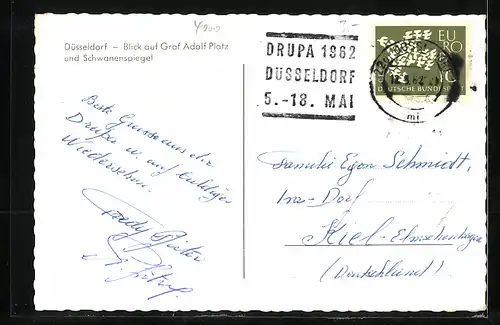 4000
Düsseldorf – Blick auf Graf Adolf Platz
und Schwanenspiegel
DRUPA 1962
DÜSSELDORF
5.-18. MAI
EURO
DEUTSCHE BUNDESPOST
mi
Beste Grüsse aus der
Drupa u. auf baldiges
Wiedersehen.
Familie Egon Schmidt,
Ina-Dorf
Kiel-Elmschenhagen
(Deutschland)